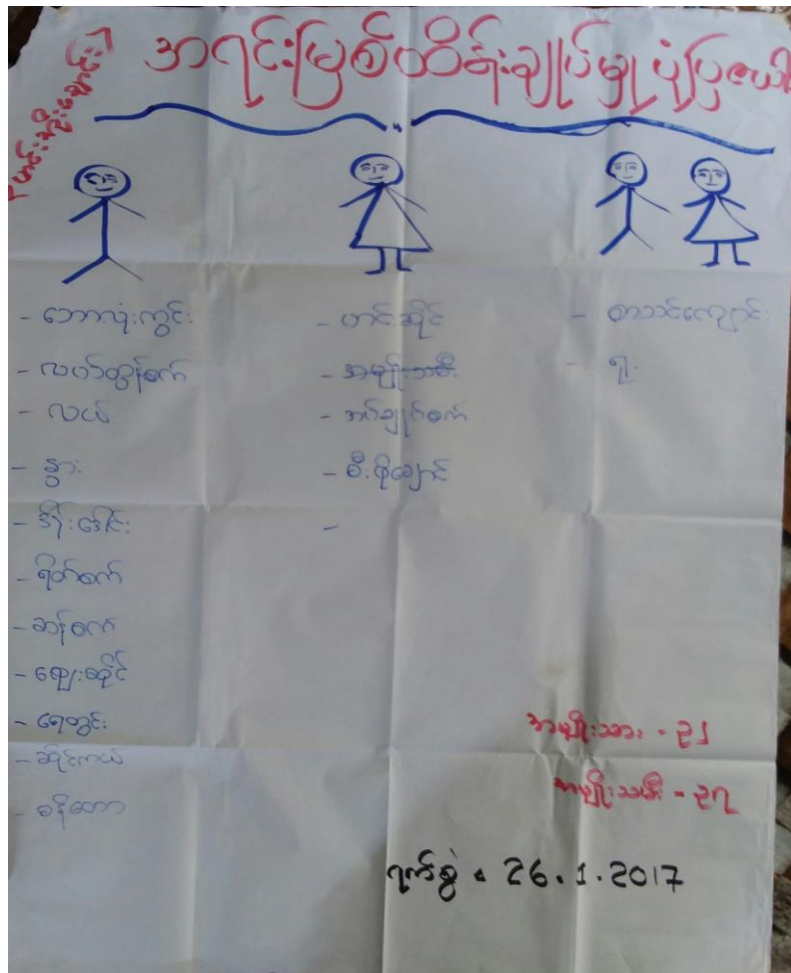 အရင်းမြစ်ထိန်းချုပ်မှု ပုံပြဇယား
- ဘောလုံးကွင်း
- လယ်ထွန်စက်
- လယ်
- နွား
- ဒိုးဒေါင်း
- ရိတ်စက်
- ဆန်စက်
- ဈေးဆိုင်
- ရေတွင်း
- ဆိုင်ကယ်
- စနိတော
- ဟင်းဆိုင်
- အမျိုးသမီး
- အပ်ချုပ်စက်
- မီးဖိုချောင်
-
- စာသင်ကျောင်း
- ရုံး
အမျိုးသား - ၃၂
အမျိုးသမီး - ၃၇
ရက်စွဲ - 26.1.2017